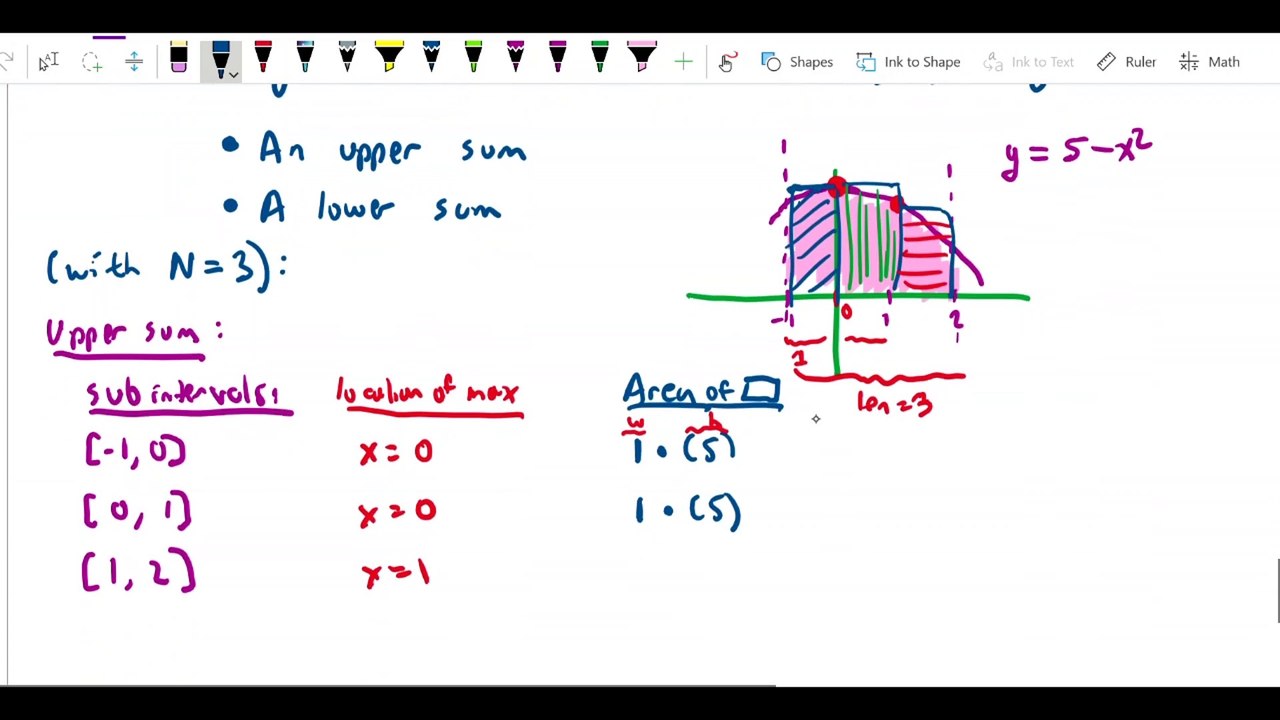 Shapes Ink to Shape Ink to Text Ruler Math
• An upper sum
• A lower sum
(with N = 3):
y = 5 - x²
-1 0 1 2
1
len = 3
Upper sum:
subintervals: location of max Area of
w h
[-1, 0] x = 0 1 • (5)
[0, 1] x = 0 1 • (5)
[1, 2] x = 1